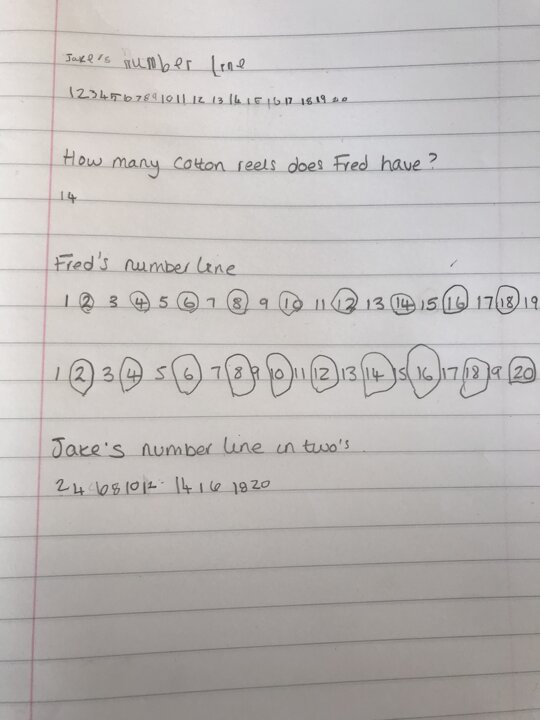 Jake's number line
1 2 3 4 5 6 7 8 9 10 11 12 13 14 15 16 17 18 19 20
How many cotton reels does Fred have?
14
Fred's number line
1 2 3 4 5 6 7 8 9 10 11 12 13 14 15 16 17 18 19
1 2 3 4 5 6 7 8 9 10 11 12 13 14 15 16 17 18 9 20
Jake's number line in two's.
2 4 6 8 10 12 14 16 18 20